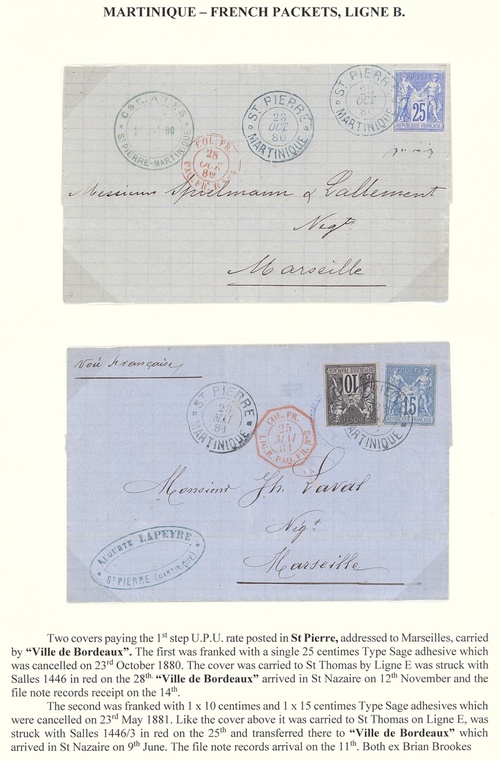 MARTINIQUE – FRENCH PACKETS, LIGNE B.
ST PIERRE
23
OCT
80
MARTINIQUE
25
REPUBLIQUE FRANÇAISE
ST PIERRE
23
OCT
80
MARTINIQUE
80
ST PIERRE-MARTINIQUE
COL. FR.
28
OCT
80
Messieurs Spielmann & Lallement
Negts
Marseille
Voie Française
10
15
ST PIERRE
23
MAI
81
MARTINIQUE
COL. FR.
25
MAI
81
LIG. B. PAQ. FR. Nº3
MARTINIQUE
Monsieur Jh. Laval
Negt
Marseille
AUGUSTE LAPEYRE
ST PIERRE (MARTINIQUE)
Two covers paying the 1st step U.P.U. rate posted in St Pierre, addressed to Marseilles, carried
by “Ville de Bordeaux”. The first was franked with a single 25 centimes Type Sage adhesive which
was cancelled on 23rd October 1880. The cover was carried to St Thomas by Ligne E was struck with
Salles 1446 in red on the 28th. “Ville de Bordeaux” arrived in St Nazaire on 12th November and the
file note records receipt on the 14th.
The second was franked with 1 x 10 centimes and 1 x 15 centimes Type Sage adhesives which
were cancelled on 23rd May 1881. Like the cover above it was carried to St Thomas on Ligne E, was
struck with Salles 1446/3 in red on the 25th and transferred there to “Ville de Bordeaux” which
arrived in St Nazaire on 9th June. The file note records arrival on the 11th. Both ex Brian Brookes